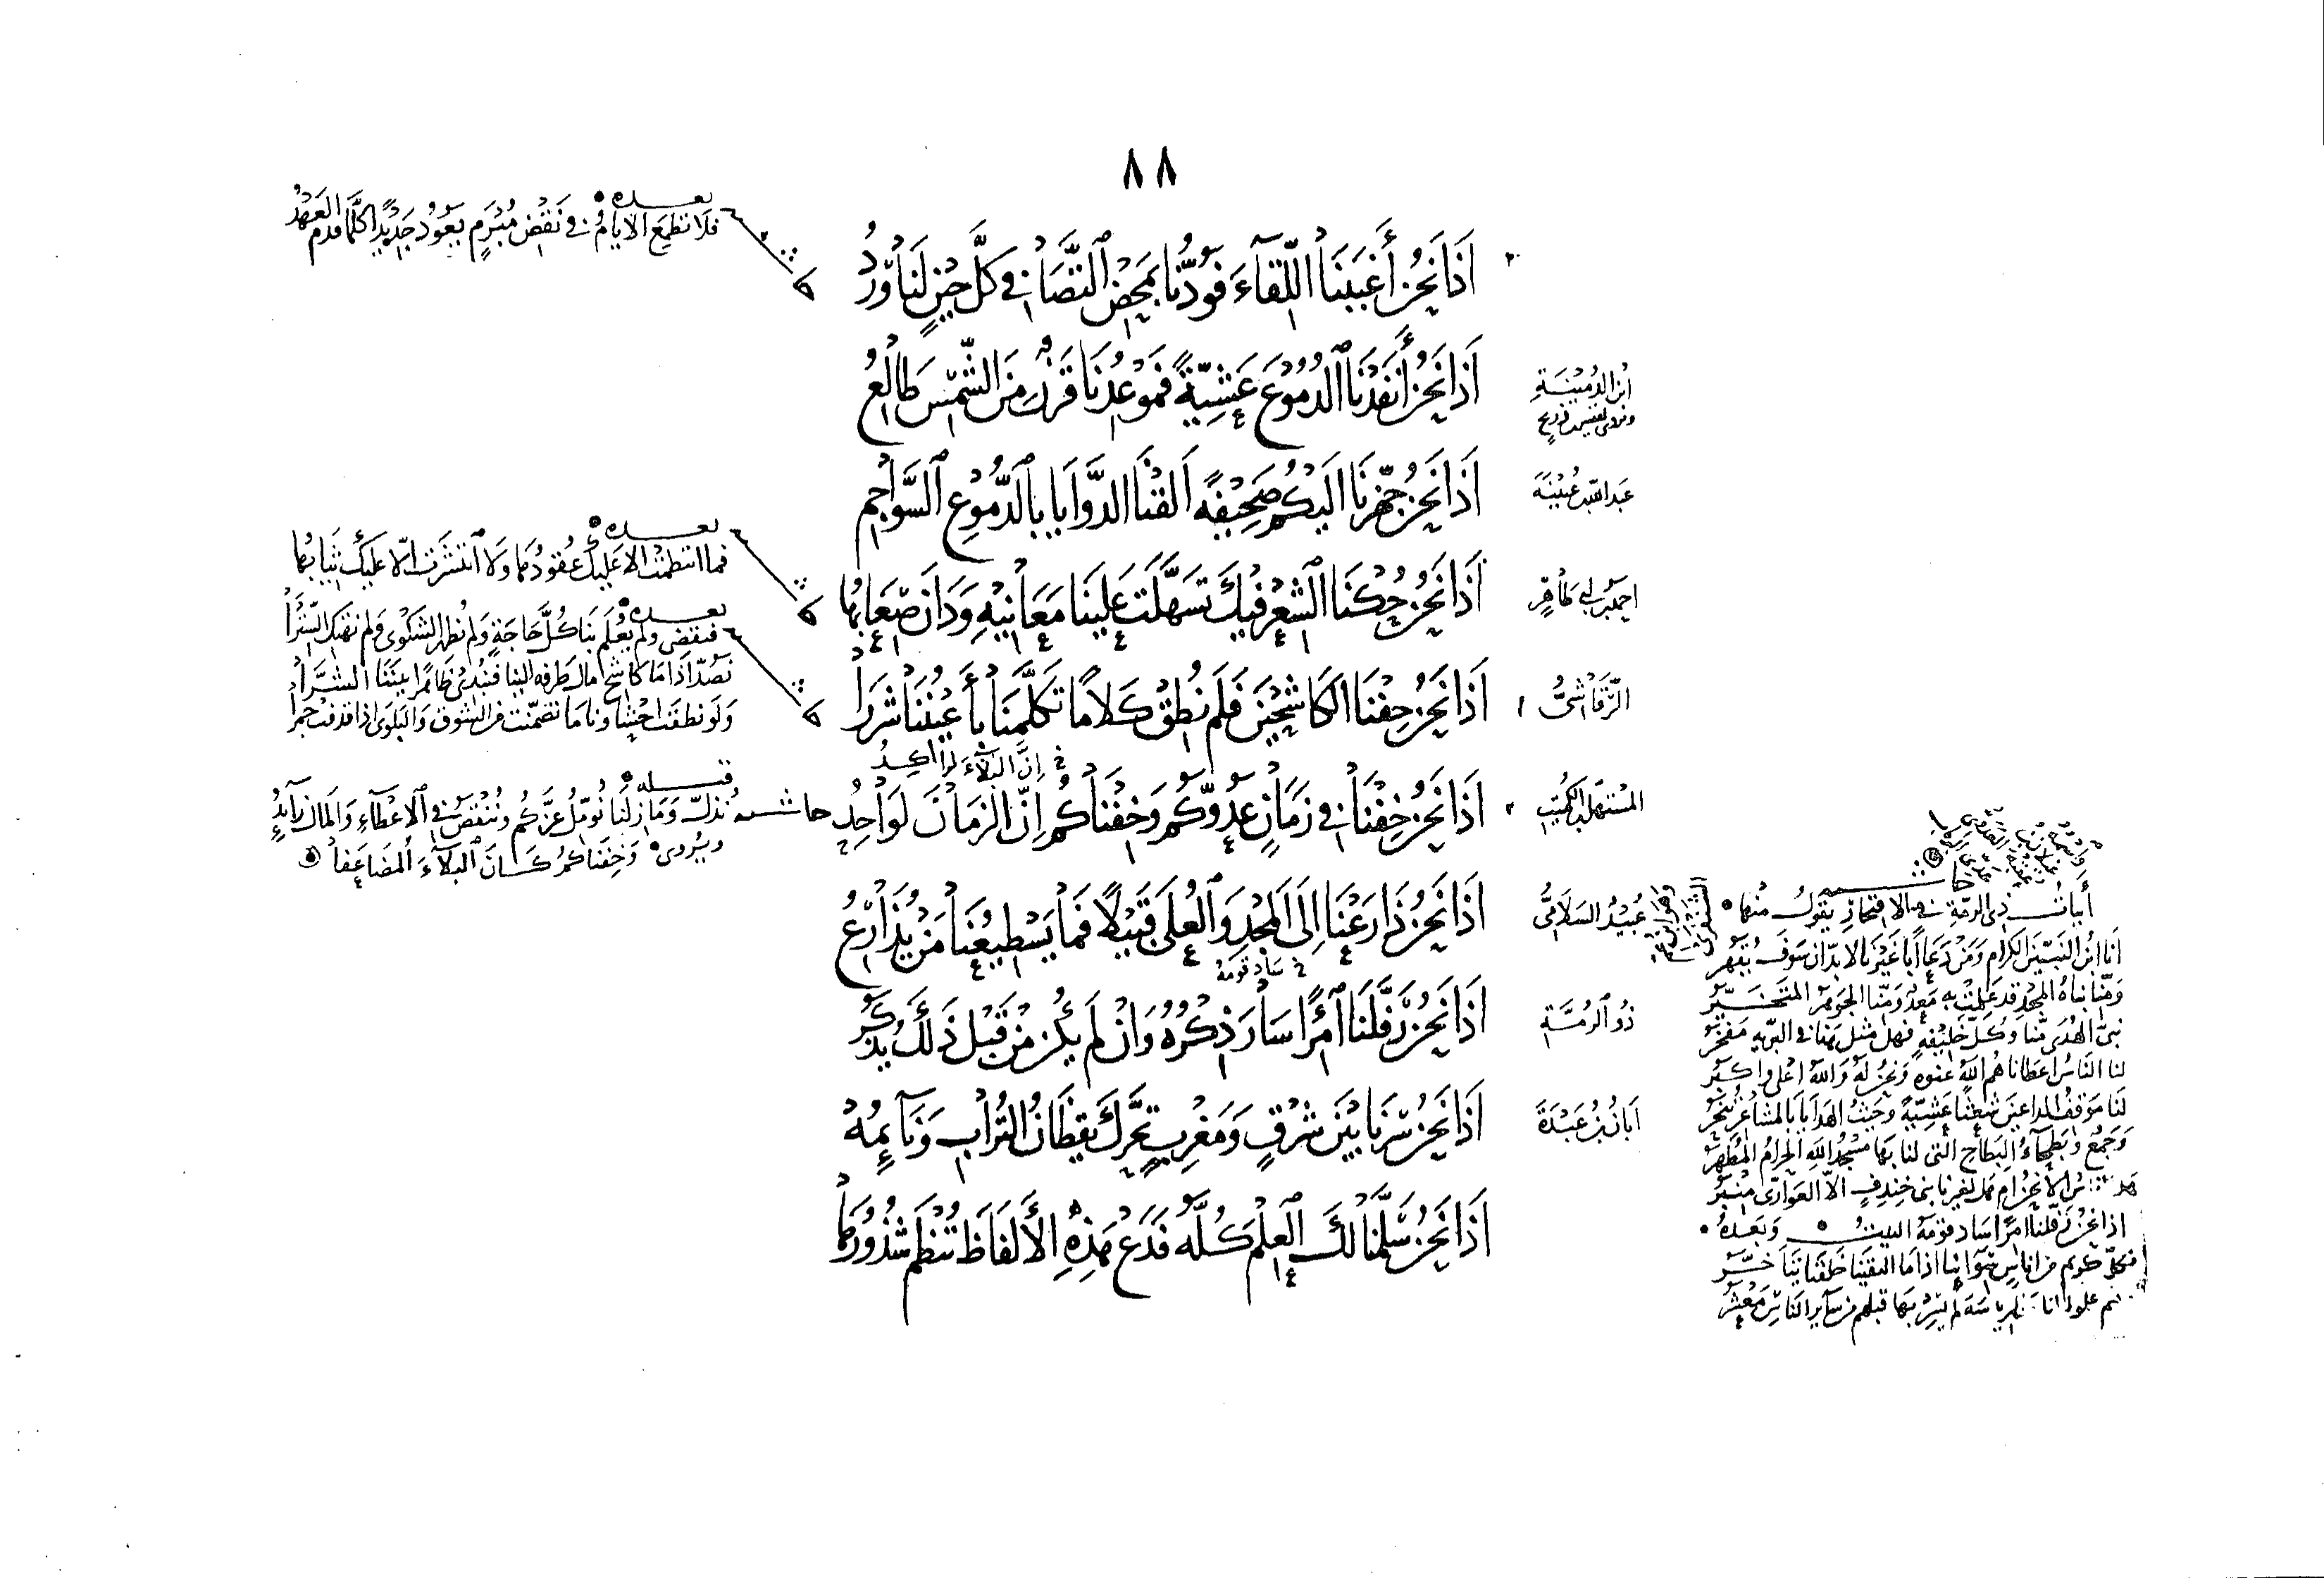 ٨٨
إِذَا نَحْنُ أَغْبَبْنَا اللِّقَاءَ فَوُدُّنَا بِمَحْضِ التَّصَافِي كُلَّ حِينٍ لَنَا وِرْدُ
بعده
فلا تطمع الأيام في نقض مبرم يعود جديدا كلما قدم العهد
ابن الدمينة
ويروى لقيس بن ذريح
إِذَا نَحْنُ أَنْفَدْنَا الدُّمُوعَ عَشِيَّةً فَمَوْعِدُنَا قَرْنٌ مِنَ الشَّمْسِ طَالِعُ
إِذَا نَحْنُ جَهَّزْنَا إِلَيْكُمْ صَحِيفَةً أَلَقْنَا الدَّوَايَا بِالدُّمُوعِ السَّوَاجِمِ
احمد بن ابي طاهر
إِذَا نَحْنُ حُكْنَا الشِّعْرَ فِيكَ تَسَهَّلَتْ عَلَيْنَا مَعَانِيهِ وَدَانَ صِعَابُهَا
بعده
فما انتظمت إلا عليك عقودها ولا انتشرت إلا عليك ثيابها
الرقاشي
إِذَا نَحْنُ خِفْنَا الكَاشِحِينَ فَلَمْ نُطِقْ كَلَامًا تَكَلَّمْنَا بِأَعْيُنِنَا شَزْرَا
بعده
فنقضي ولم يعلم بنا كل حاجة ولم نظهر الشكوى ولم نهتك السترا
نصد اذا ما كاشح مال طرفه الينا فنبدي ظاهرا بيننا الشزرا
ولو نطقت احشاؤنا ما تضمنت من الشوق والبلوى اذا قذفت جمرا
المستهل بن الكميت
إِذَا نَحْنُ خِفْنَا فِي زَمَانِ عَدُوِّكُمْ وَخِفْنَاكُمُ إِنَّ الزَمَانَ لَوَاحِدُ
خ إنّ البلاء لراكد
حاشية
قبله
نذل وما زلنا نؤمل عزكم وننقص في الإعطاء والمال زائد
ويروى وخفناكم كان البلاء المضاعفا
عبيد السلامي
إِذَا نَحْنُ ذَارَعْنَا إِلَى المَجْدِ وَالعُلَى قَبِيلًا فَمَا يَسْطِيعُنَا مَنْ يُذَارِعُ
ذو الرمة
إِذَا نَحْنُ رَفَّلْنَا امْرَأً سَارَ ذِكْرُهُ وَإِنْ لَمْ يَكُنْ مِنْ قَبْلِ ذَلِكَ يُذْكَرُ
خ ساد قومه
ابان بن عبدة
إِذَا نَحْنُ سِرْنَا بَيْنَ شَرْقٍ وَمَغْرِبٍ تَحَرَّكَ يَقْظَانُ التُّرَابِ وَنَائِمُهْ
إِذَا نَحْنُ سَلَّمْنَا لَكَ العِلْمَ كُلَّهُ فَدَعْ هَذِهِ الأَلْفَاظَ تُنْظَمْ شُذُورُهَا
أبيات ذي الرمة في الافتخار يقول منها
أنا ابن النبيين الكرام ومن دعا أبا غيرنا لا بد أن سوف يقهر
ومنا بناة المجد قد علمت به معد ومنا الجوهر المتخير
نبي الهدى منا وكل خليفة فهل مثل هذا في البرية مفخر
لنا الناس أعطاناهم الله عنوة ونحن له والله أعلى وأكبر
لنا موقف الداعين شعثا عشية وحيث الهدايا بالمشاعر تنحر
وجمع وبطحاء البطاح التي لنا بها مسجد الله الحرام المطهر
اذا نحن رفلنا امرأ ساد قومه البيت وبعده